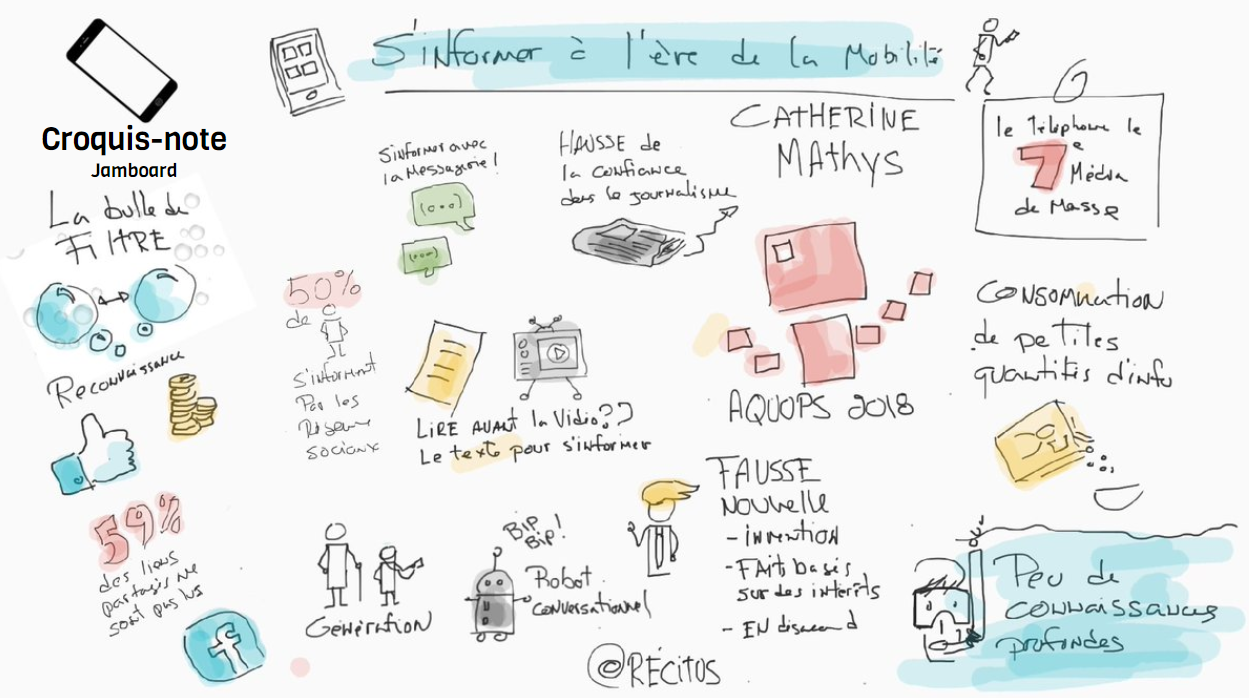 Croquis-note
Jamboard
S'informer à l'ère de la Mobilité
CATHERINE
MAthys
le Téléphone le
7e Média
de Masse
S'informer avec
la Messagerie!
HAUSSE de
la confiance
dans le journalisme
La bulle de
FiltRE
Reconnaissance
50%
de
S'informent
Par les
Réseaux
sociaux
LIRE AVANT la Vidéo??
Le texte pour s'informer
AQUOPS 2018
CONSOMMATION
de petites
quantités d'info
59%
des liens
partagés ne
sont pas lus
GénéRATION
BIP
Bip!
Robot
conversationnel
FAUSSE
Nouvelle
- invention
- FAits basés
sur des intérêts
- EN
Peu de
connaissances
profondes
@RÉCITUS